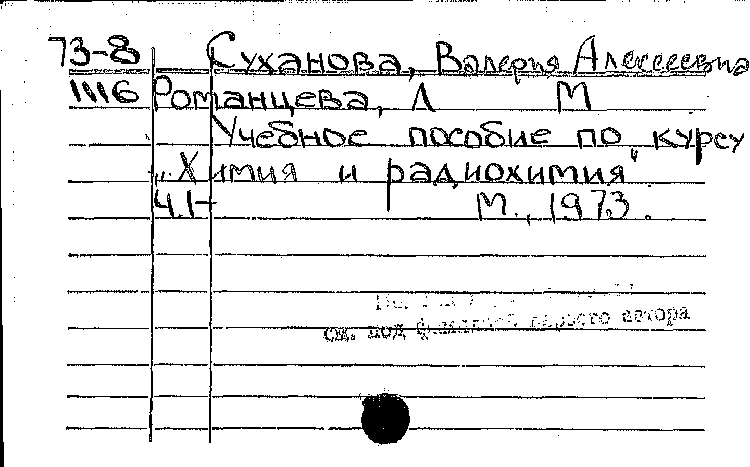 73-8 Суханова, Валерия Алексеевна
11116 Романцева, Л М
Учебное пособие по курсу
"Химия и радиохимия"
Ч.1- М., 1973.
см. под фамилией первого автора